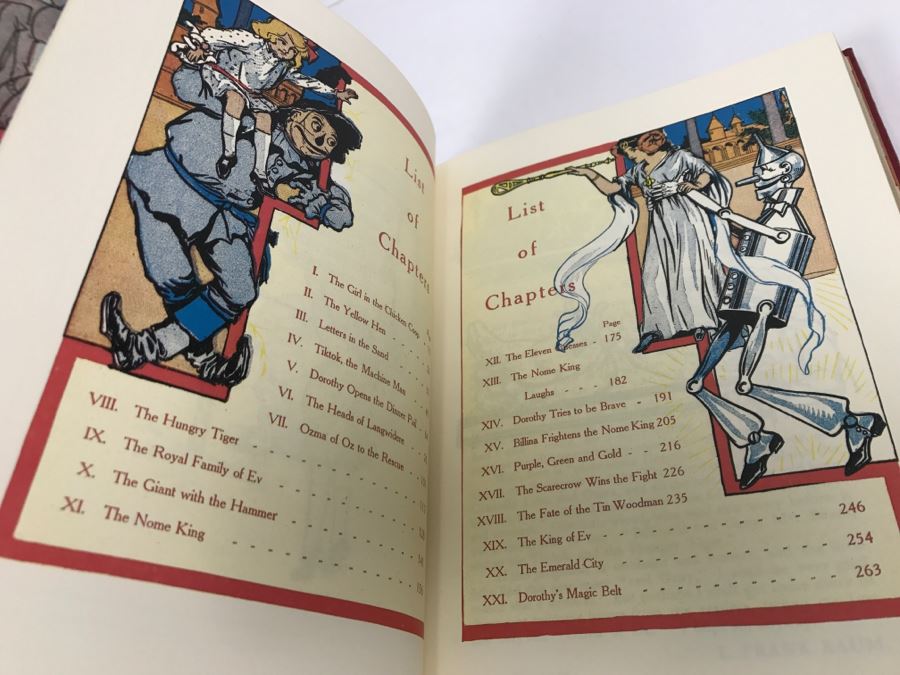 List
of
Chapters
I. The Girl in the Chicken Coop
II. The Yellow Hen
III. Letters in the Sand
IV. Tiktok, the Machine Man
V. Dorothy Opens the Dinner Pail
VI. The Heads of Langwidere
VII. Ozma of Oz to the Rescue
VIII. The Hungry Tiger
IX. The Royal Family of Ev
X. The Giant with the Hammer
XI. The Nome King
List
of
Chapters
Page
XII. The Eleven - 175
XIII. The Nome King
Laughs - - - 182
XIV. Dorothy Tries to be Brave - 191
XV. Billina Frightens the Nome King 205
XVI. Purple, Green and Gold - - 216
XVII. The Scarecrow Wins the Fight 226
XVIII. The Fate of the Tin Woodman 235
XIX. The King of Ev 246
XX. The Emerald City 254
XXI. Dorothy's Magic Belt 263
L. FRANK BAUM.